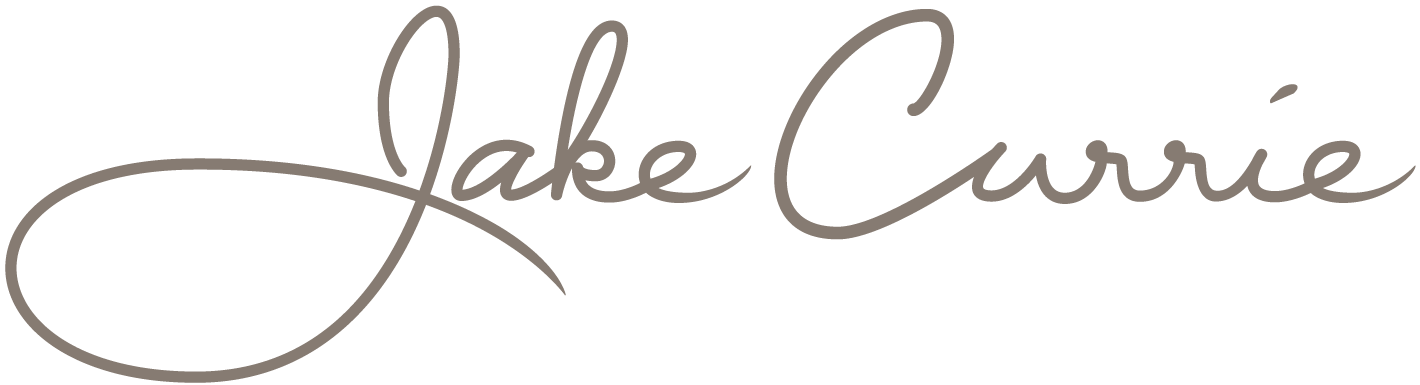 Jake Currie